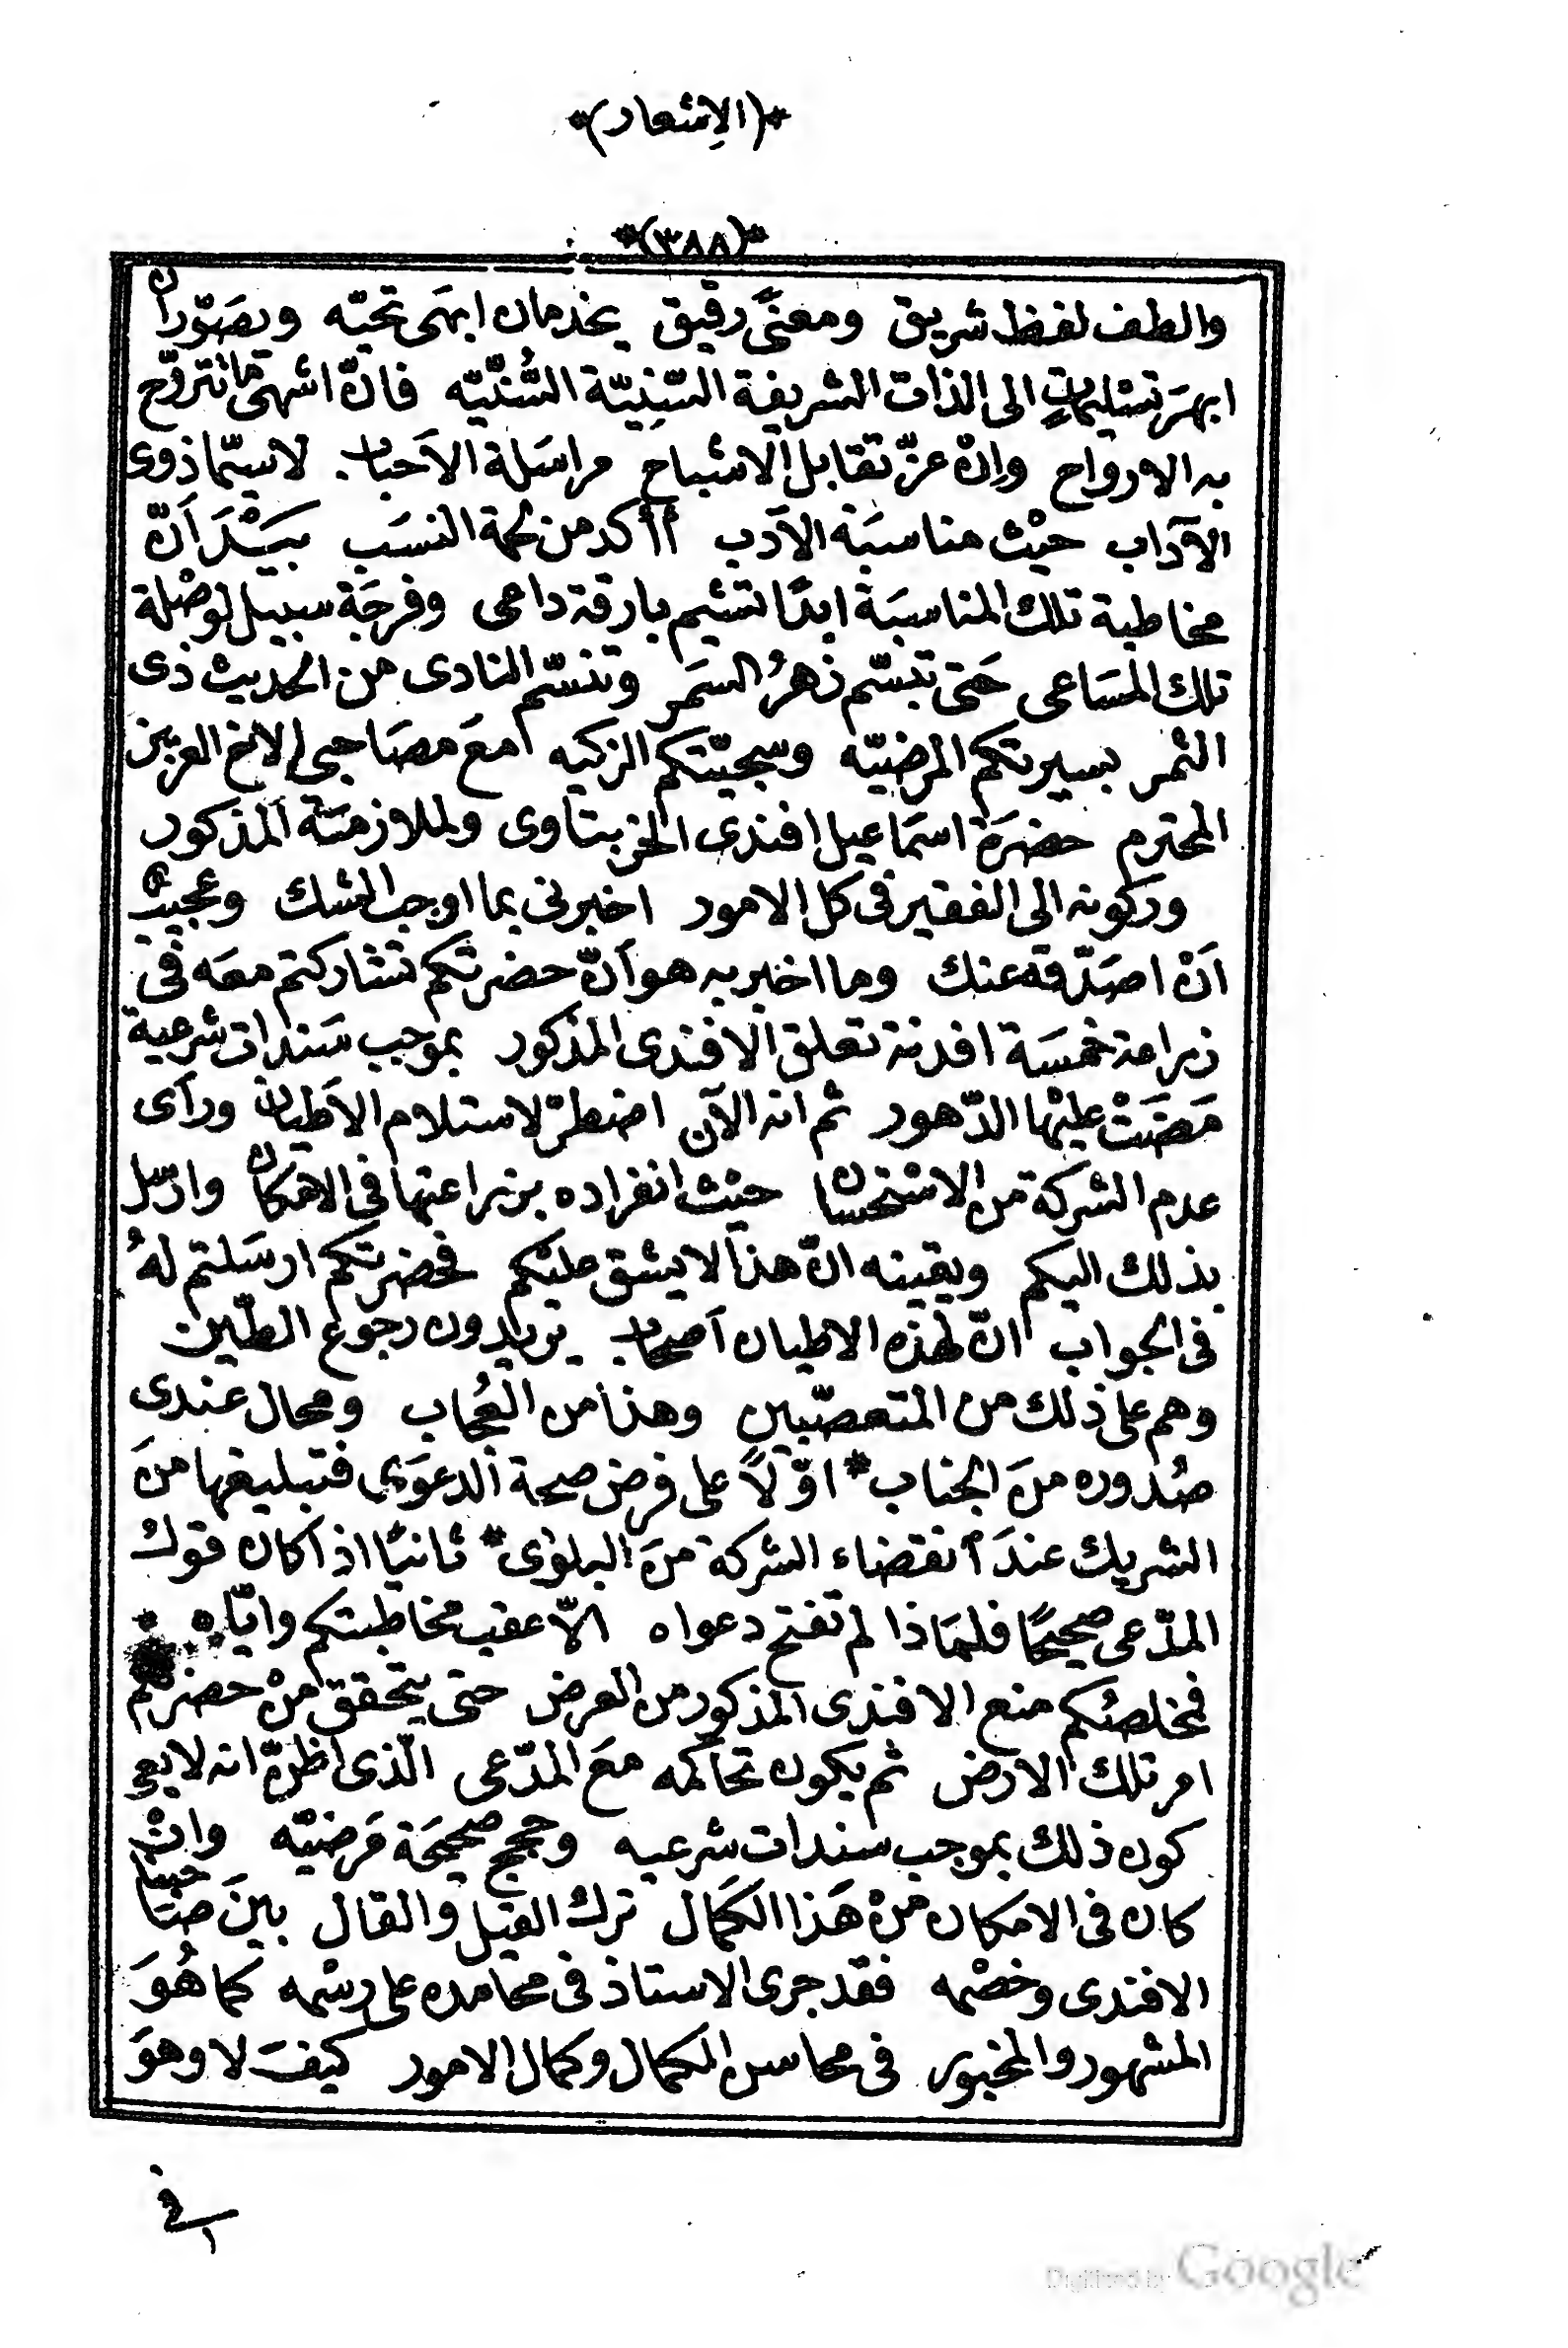 *(الاِشعار)*
*(٣٨٨)*
والطف لفظ شريق ومعنًى رقيق يخدمان ابهَى تحيّه ويصَوّران
ابهرَ تسْليماتٍ الى الذات الشريفة السّنِيّة السُّنّيّه فانّ اشهى ما نتروّح
به الارواح وانْ عزّ تقابل الاشباح مراسَلة الاَحباب لاسيّما ذوى
الآداب حيْث مناسبَة الاَدب أأكد من لحمة النسَب بَيْدَ اَنّ
مخاطبة تلك المناسبَة ابدًا تشيم بارقة داعى وفرجَة سبيل لوصْلة
تلك المسَاعى حَتى تبسّم زهرُ السمَر وتنسّم النادى من الحديث ذى
الثمر بسيرتكم المرضيّه وسجيّتكم الزكيه معَ مصَاحبى الاخ العزيز
المحترم حضرَة اسمَاعيل افندى الخربتاوى ولملازمَتة المذكور
وركونه الى الفقير فى كل الامور اخبرنى بما اوجب الشك وعجيبٌ
اَنْ اصَدّقه عنك وما اخبر به هو اَنّ حضرتكم تشاركتم معَه فى
زراعة خمسَة افدنة تعلق الافندى المذكور بموجب سَندات شرعية
مَضَتْ عليْها الدّهور ثم انه الآن اضطرّ لاستلام الاَطيان ورآى
عدم الشركة من الاسْتحْسان حيْث انفراده بزراعتها فى الامكان وارسل
بذلك اليكم ويقينه انّ هذا لا يشق عليْكم فحضرتكم ارسَلتم لهُ
فى الجواب انّ لهذه الاطيان اَصحاب يريدون رجوع الطّين
وهم على ذلك من المتعصّبين وهذا من العُجاب ومحال عندى
صُدوره منَ الجناب * اوّلاً على فرض صحة الدعوَى فتبليغها منَ
الشريك عندَ انقضاء الشركة منَ البلوى * ثانيًا اذا كان قولُ
المدّعى صحيحًا فلمَاذا لم تفتح دعواه الاّ عقيب مخاطبتكم وايّاه *
فمخلصُكم منع الافندى المذكور من العرض حتى يتحقق منْ حضرتكم
امر تلك الارض ثم يكون تحاكمه معَ المدّعى الّذى اظنّ انه لا يعى
كون ذلك بموجب سندات شرعيه وحجج صحيحَة مَرضيّه وانْ
كان فى الامكان منْ هَذا الكمَال ترك القيل والقال بينَ جنَاب
الافندى وخصْمه فقد جرى الاستاذ فى محامده على رسْمه كما هُوَ
المشهور والمخبور فى محاسن الكمال وكمال الامور كيفَ لا وهوَ
Digitized by Google